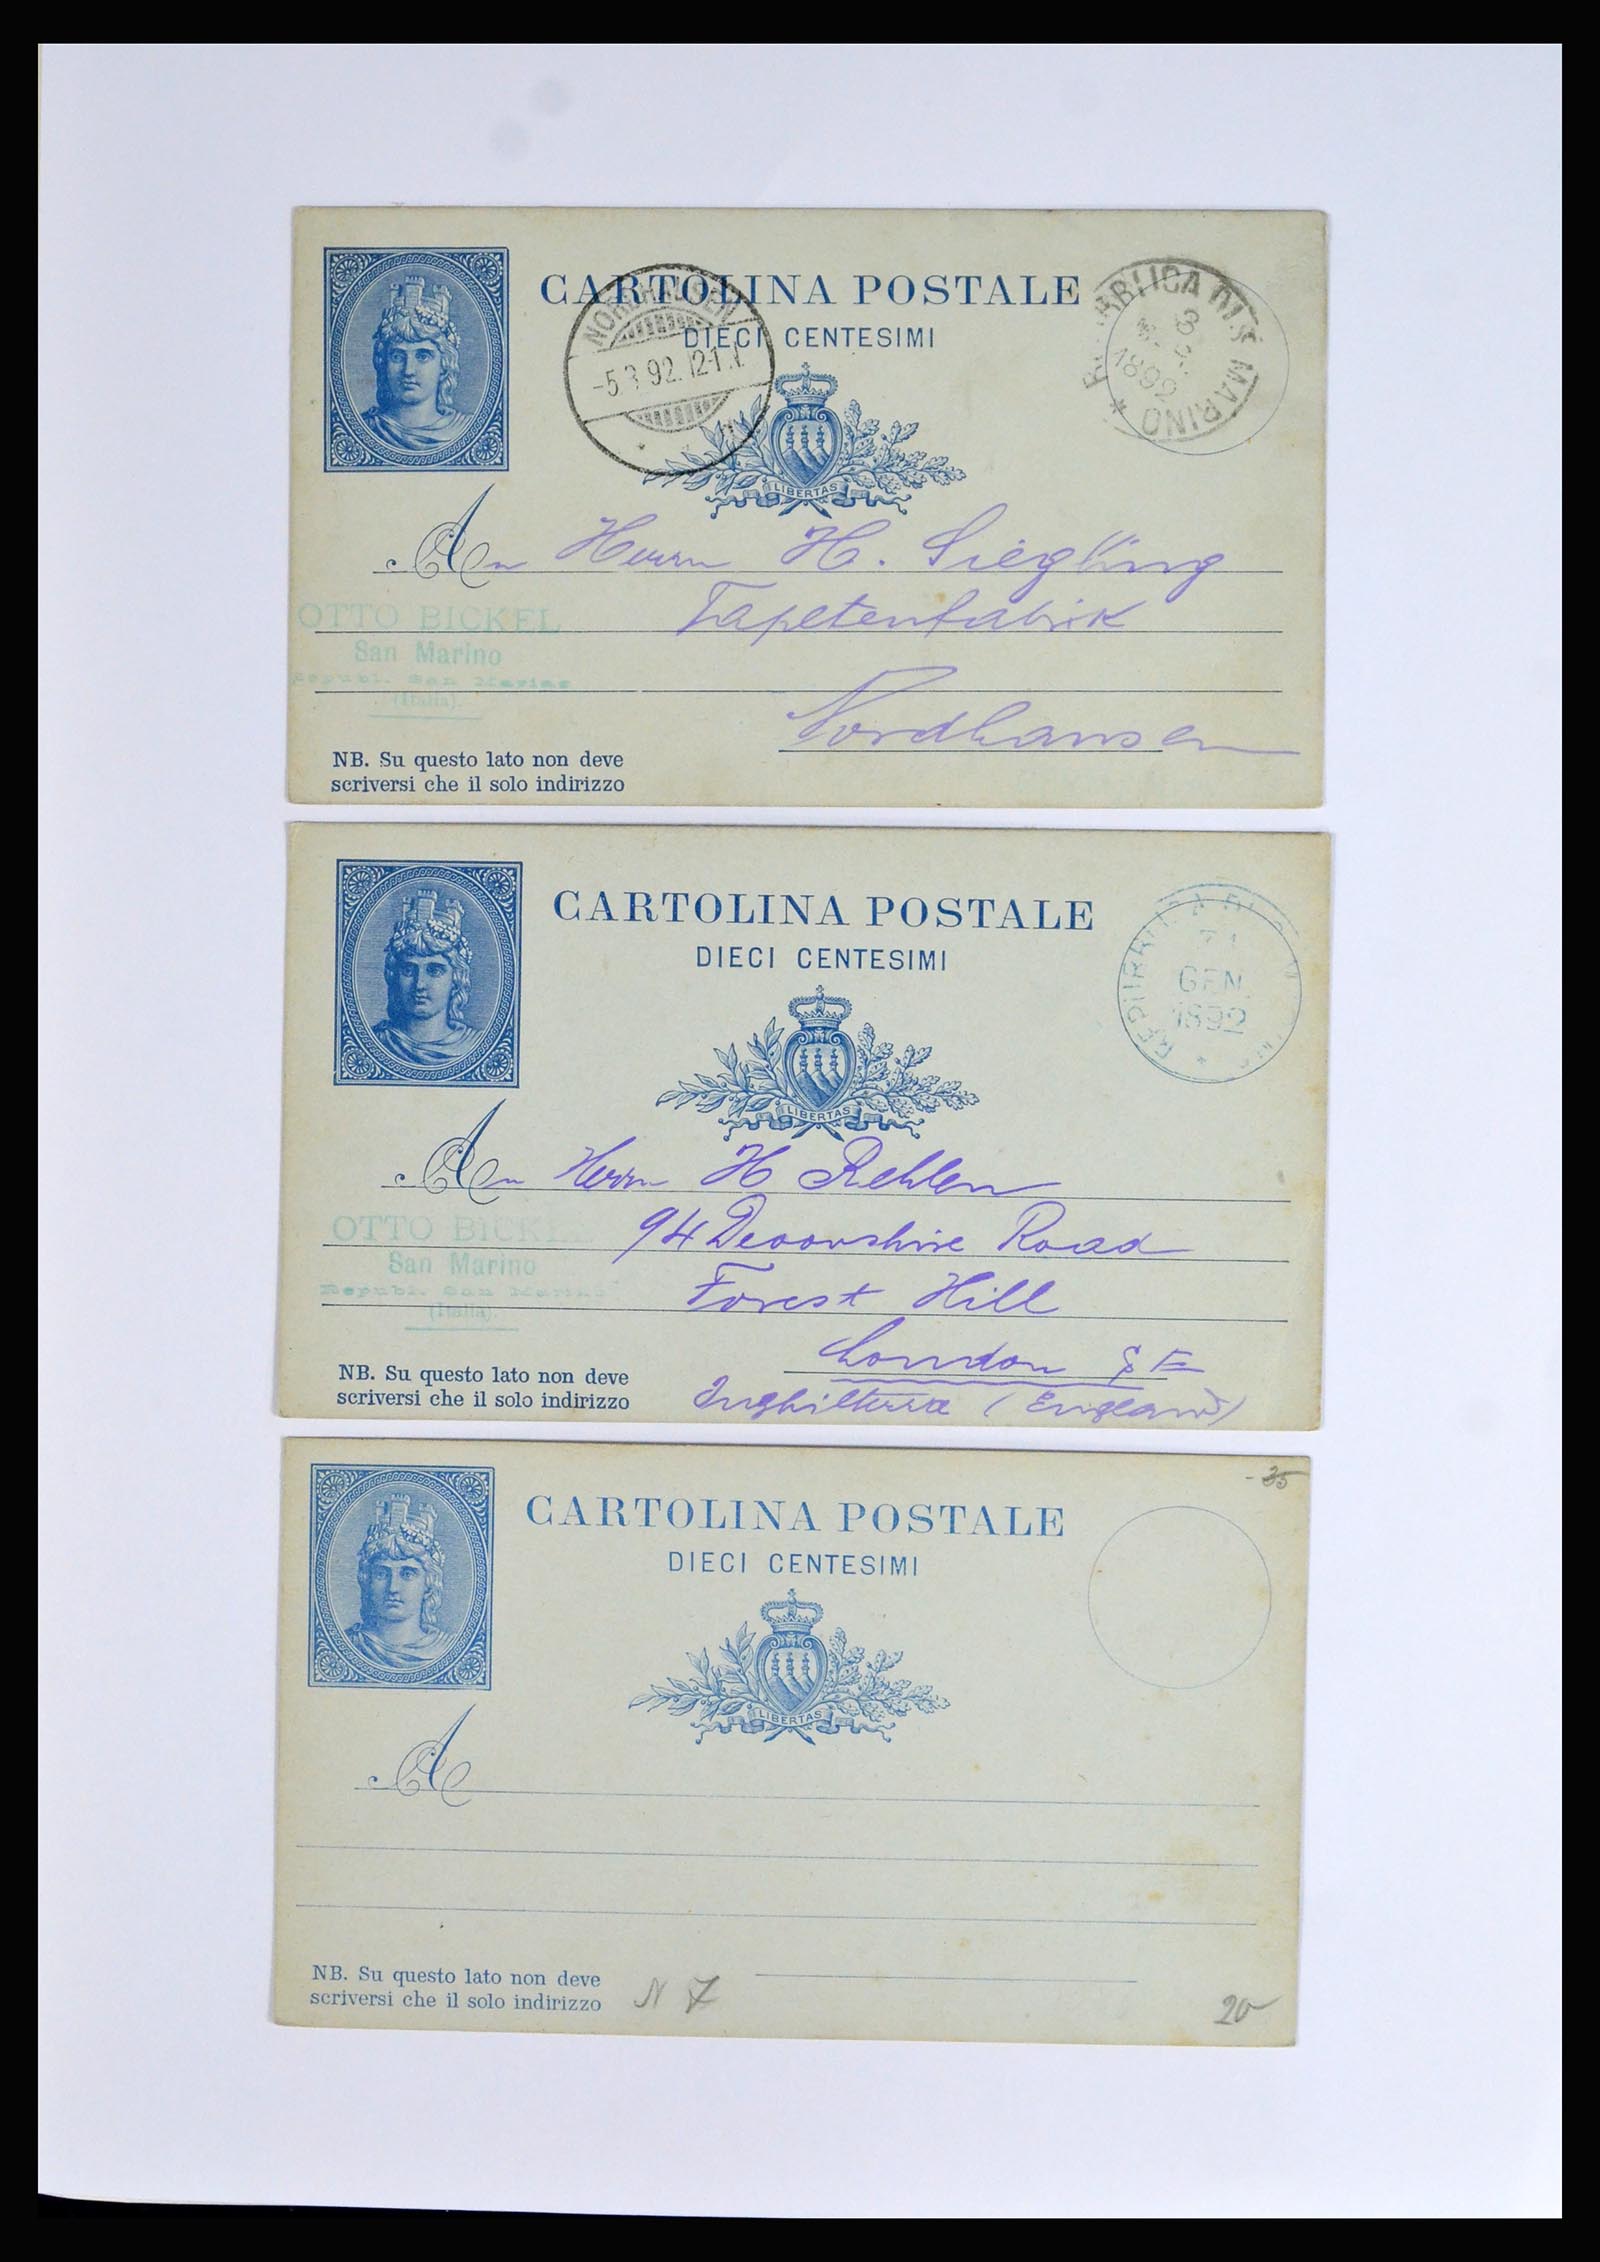 CARTOLINA POSTALE
DIECI CENTESIMI
NORDHAUSEN
-5.3.92. 12-1.N.
REPUBBLICA DI S. MARINO
1892
LIBERTAS
An Herrn H. Siegling
Tapetenfabrik
Nordhausen
OTTO BICKEL
San Marino
Republ. San Marino
(Italia).
NB. Su questo lato non deve
scriversi che il solo indirizzo
CARTOLINA POSTALE
DIECI CENTESIMI
REPUBBLICA DI
GEN
1892
LIBERTAS
An Herrn H Rehlen
94 Devonshire Road
Forest Hill
London SE
Inghilterra (England)
OTTO BICKEL
San Marino
Republ. San Marino
(Italia).
NB. Su questo lato non deve
scriversi che il solo indirizzo
-35
CARTOLINA POSTALE
DIECI CENTESIMI
LIBERTAS
A
NB. Su questo lato non deve
scriversi che il solo indirizzo
N 7
20-